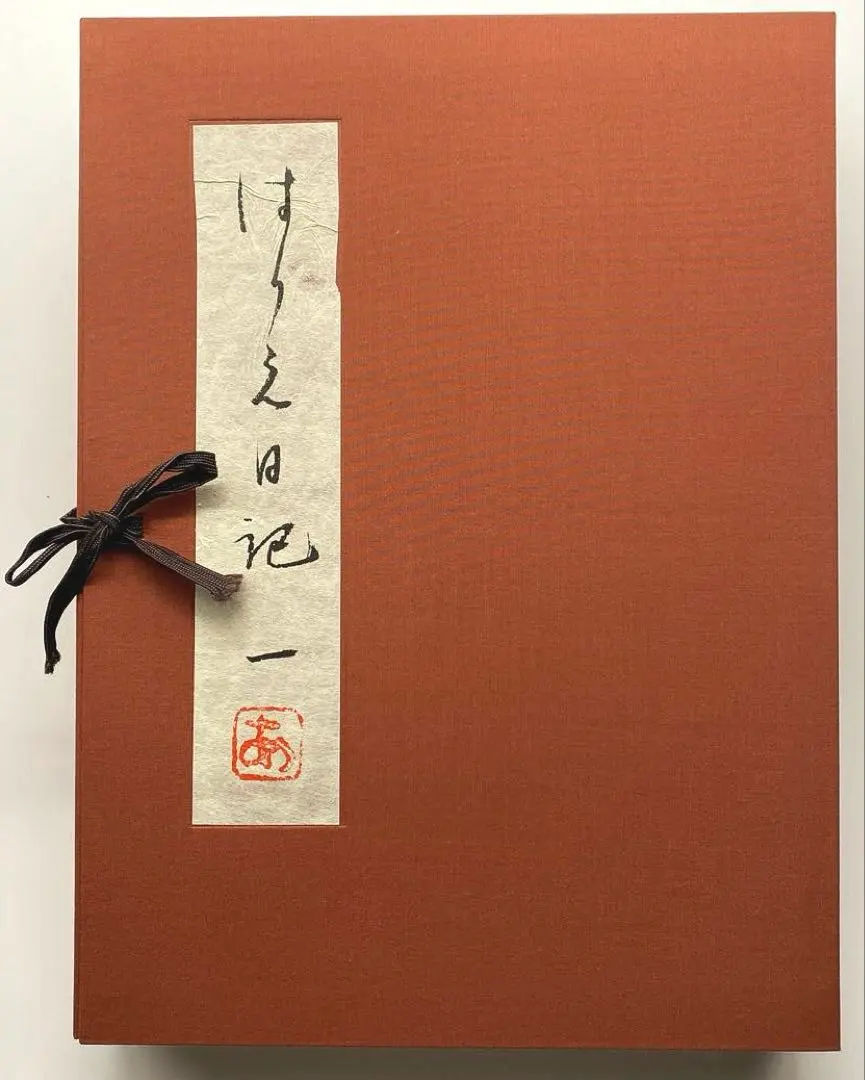 はりえ日記 一
あ